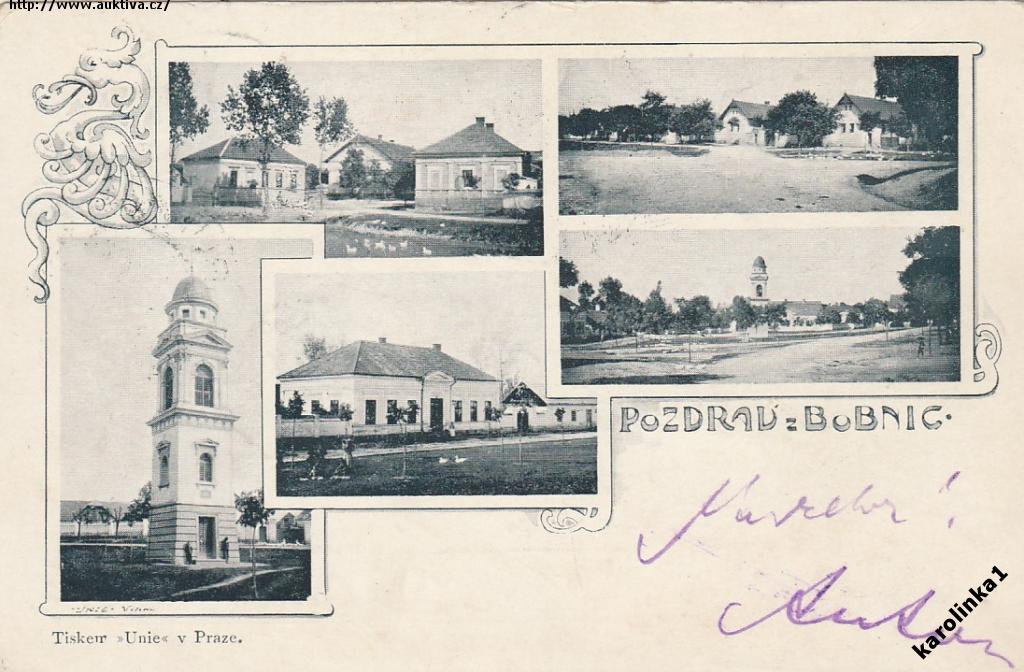 http://www.auktiva.cz/
POZDRAV z BOBNIC.
Tiskem »Unie« v Praze.
karolinka1